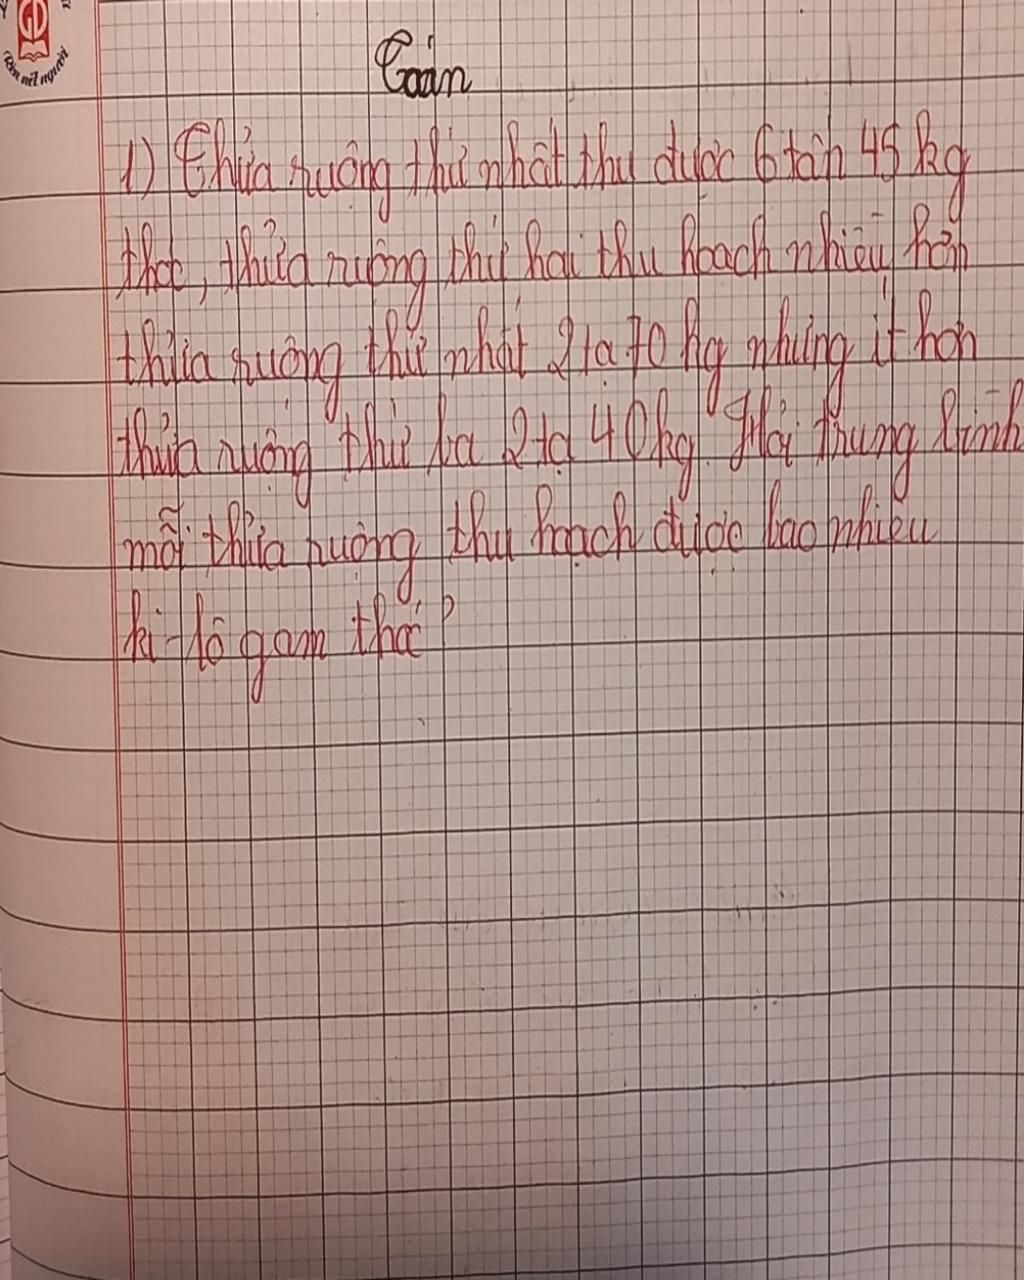 GD
Rèn nết người
Toán
1) Thửa ruộng thứ nhất thu được 6 tấn 45 kg
thóc, thửa ruộng thứ hai thu hoạch nhiều hơn
thửa ruộng thứ nhất 2 tạ 70 kg nhưng ít hơn
thửa ruộng thứ ba 2 tạ 40 kg. Hỏi trung bình
mỗi thửa ruộng thu hoạch được bao nhiêu
ki-lô gam thóc?